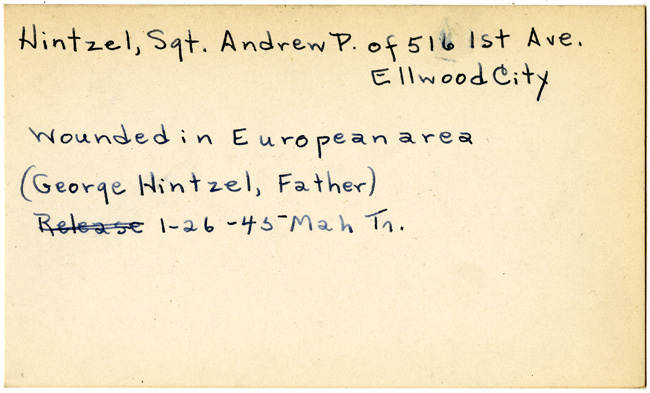 Hintzel, Sgt. Andrew P. of 516 1st Ave.
Ellwood City
Wounded in European area
(George Hintzel, Father)
Release 1-26-45 Mah Tr.